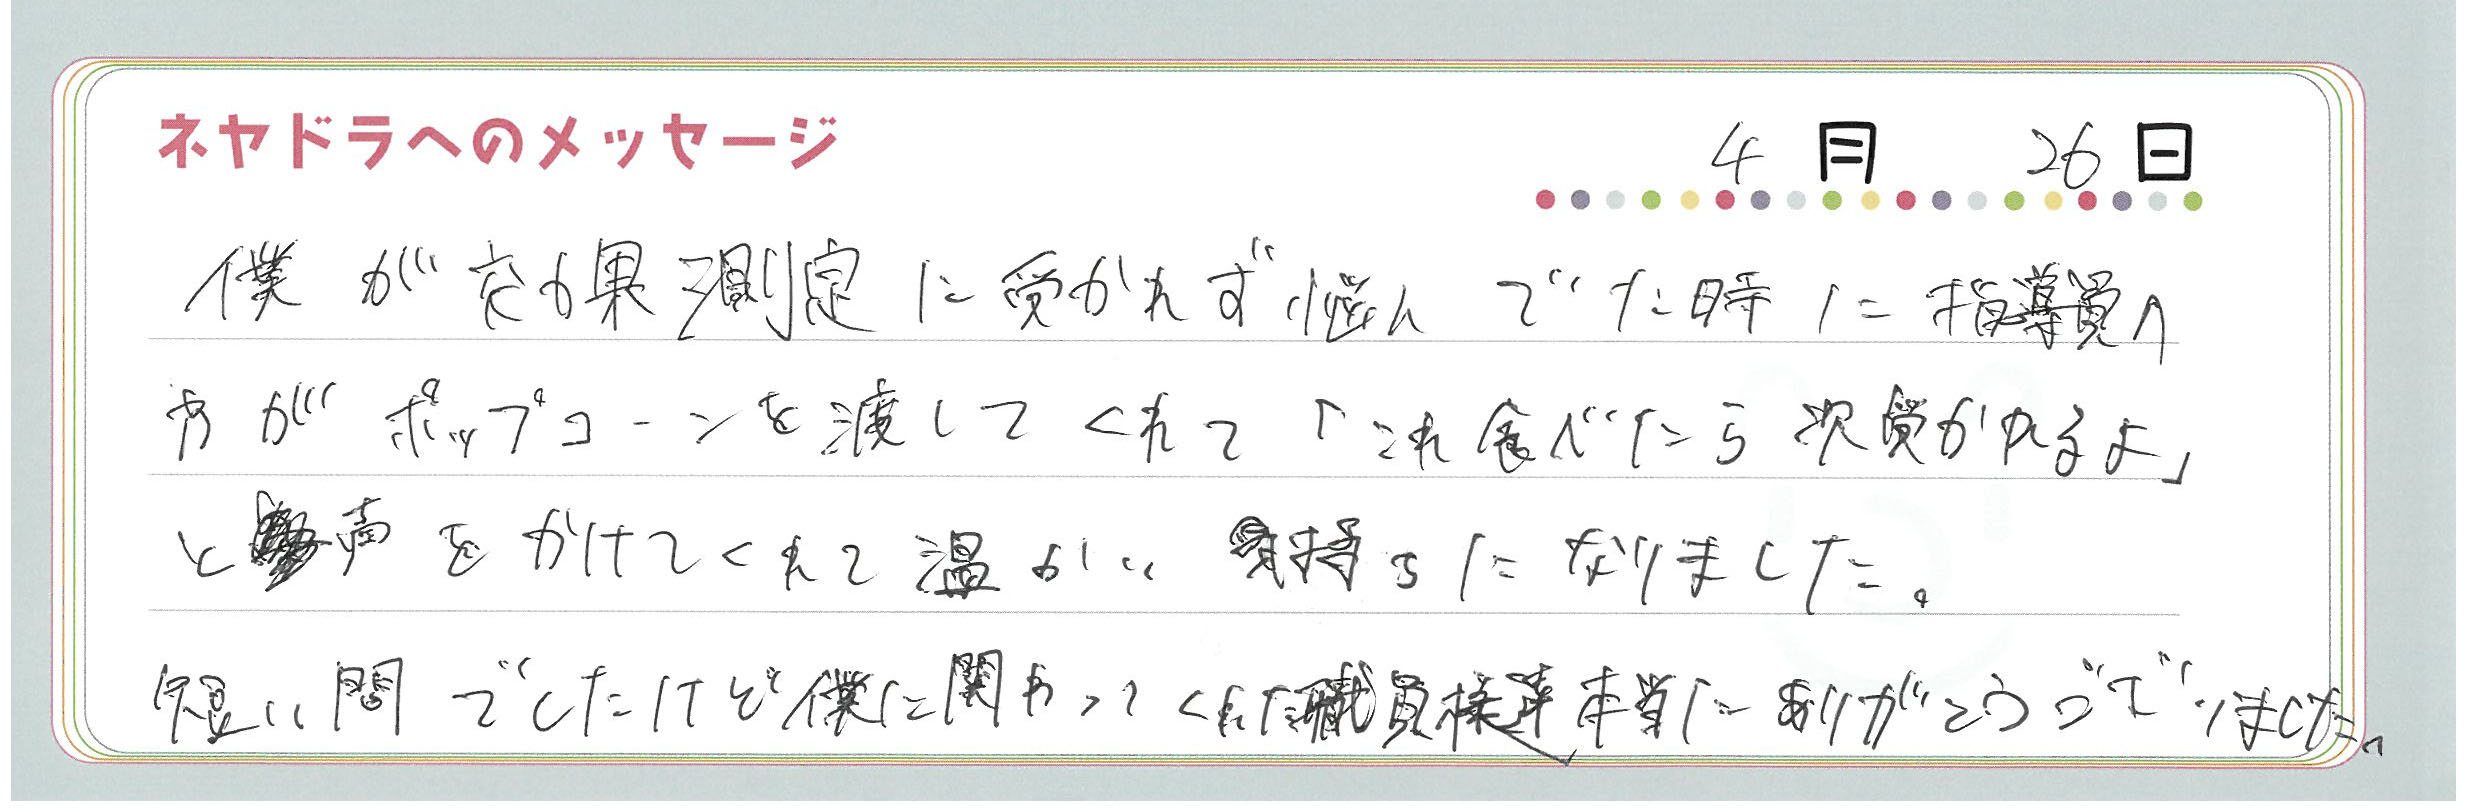 ネヤドラへのメッセージ
4月 26日
僕が効果測定に受かれず悩んでた時に指導員の
方がポップコーンを渡してくれて「これ食べたら次受かれるよ」
と声をかけてくれて温かい気持ちになりました。
短い間でしたけど僕に関わってくれた職員様達本当にありがとうございました。